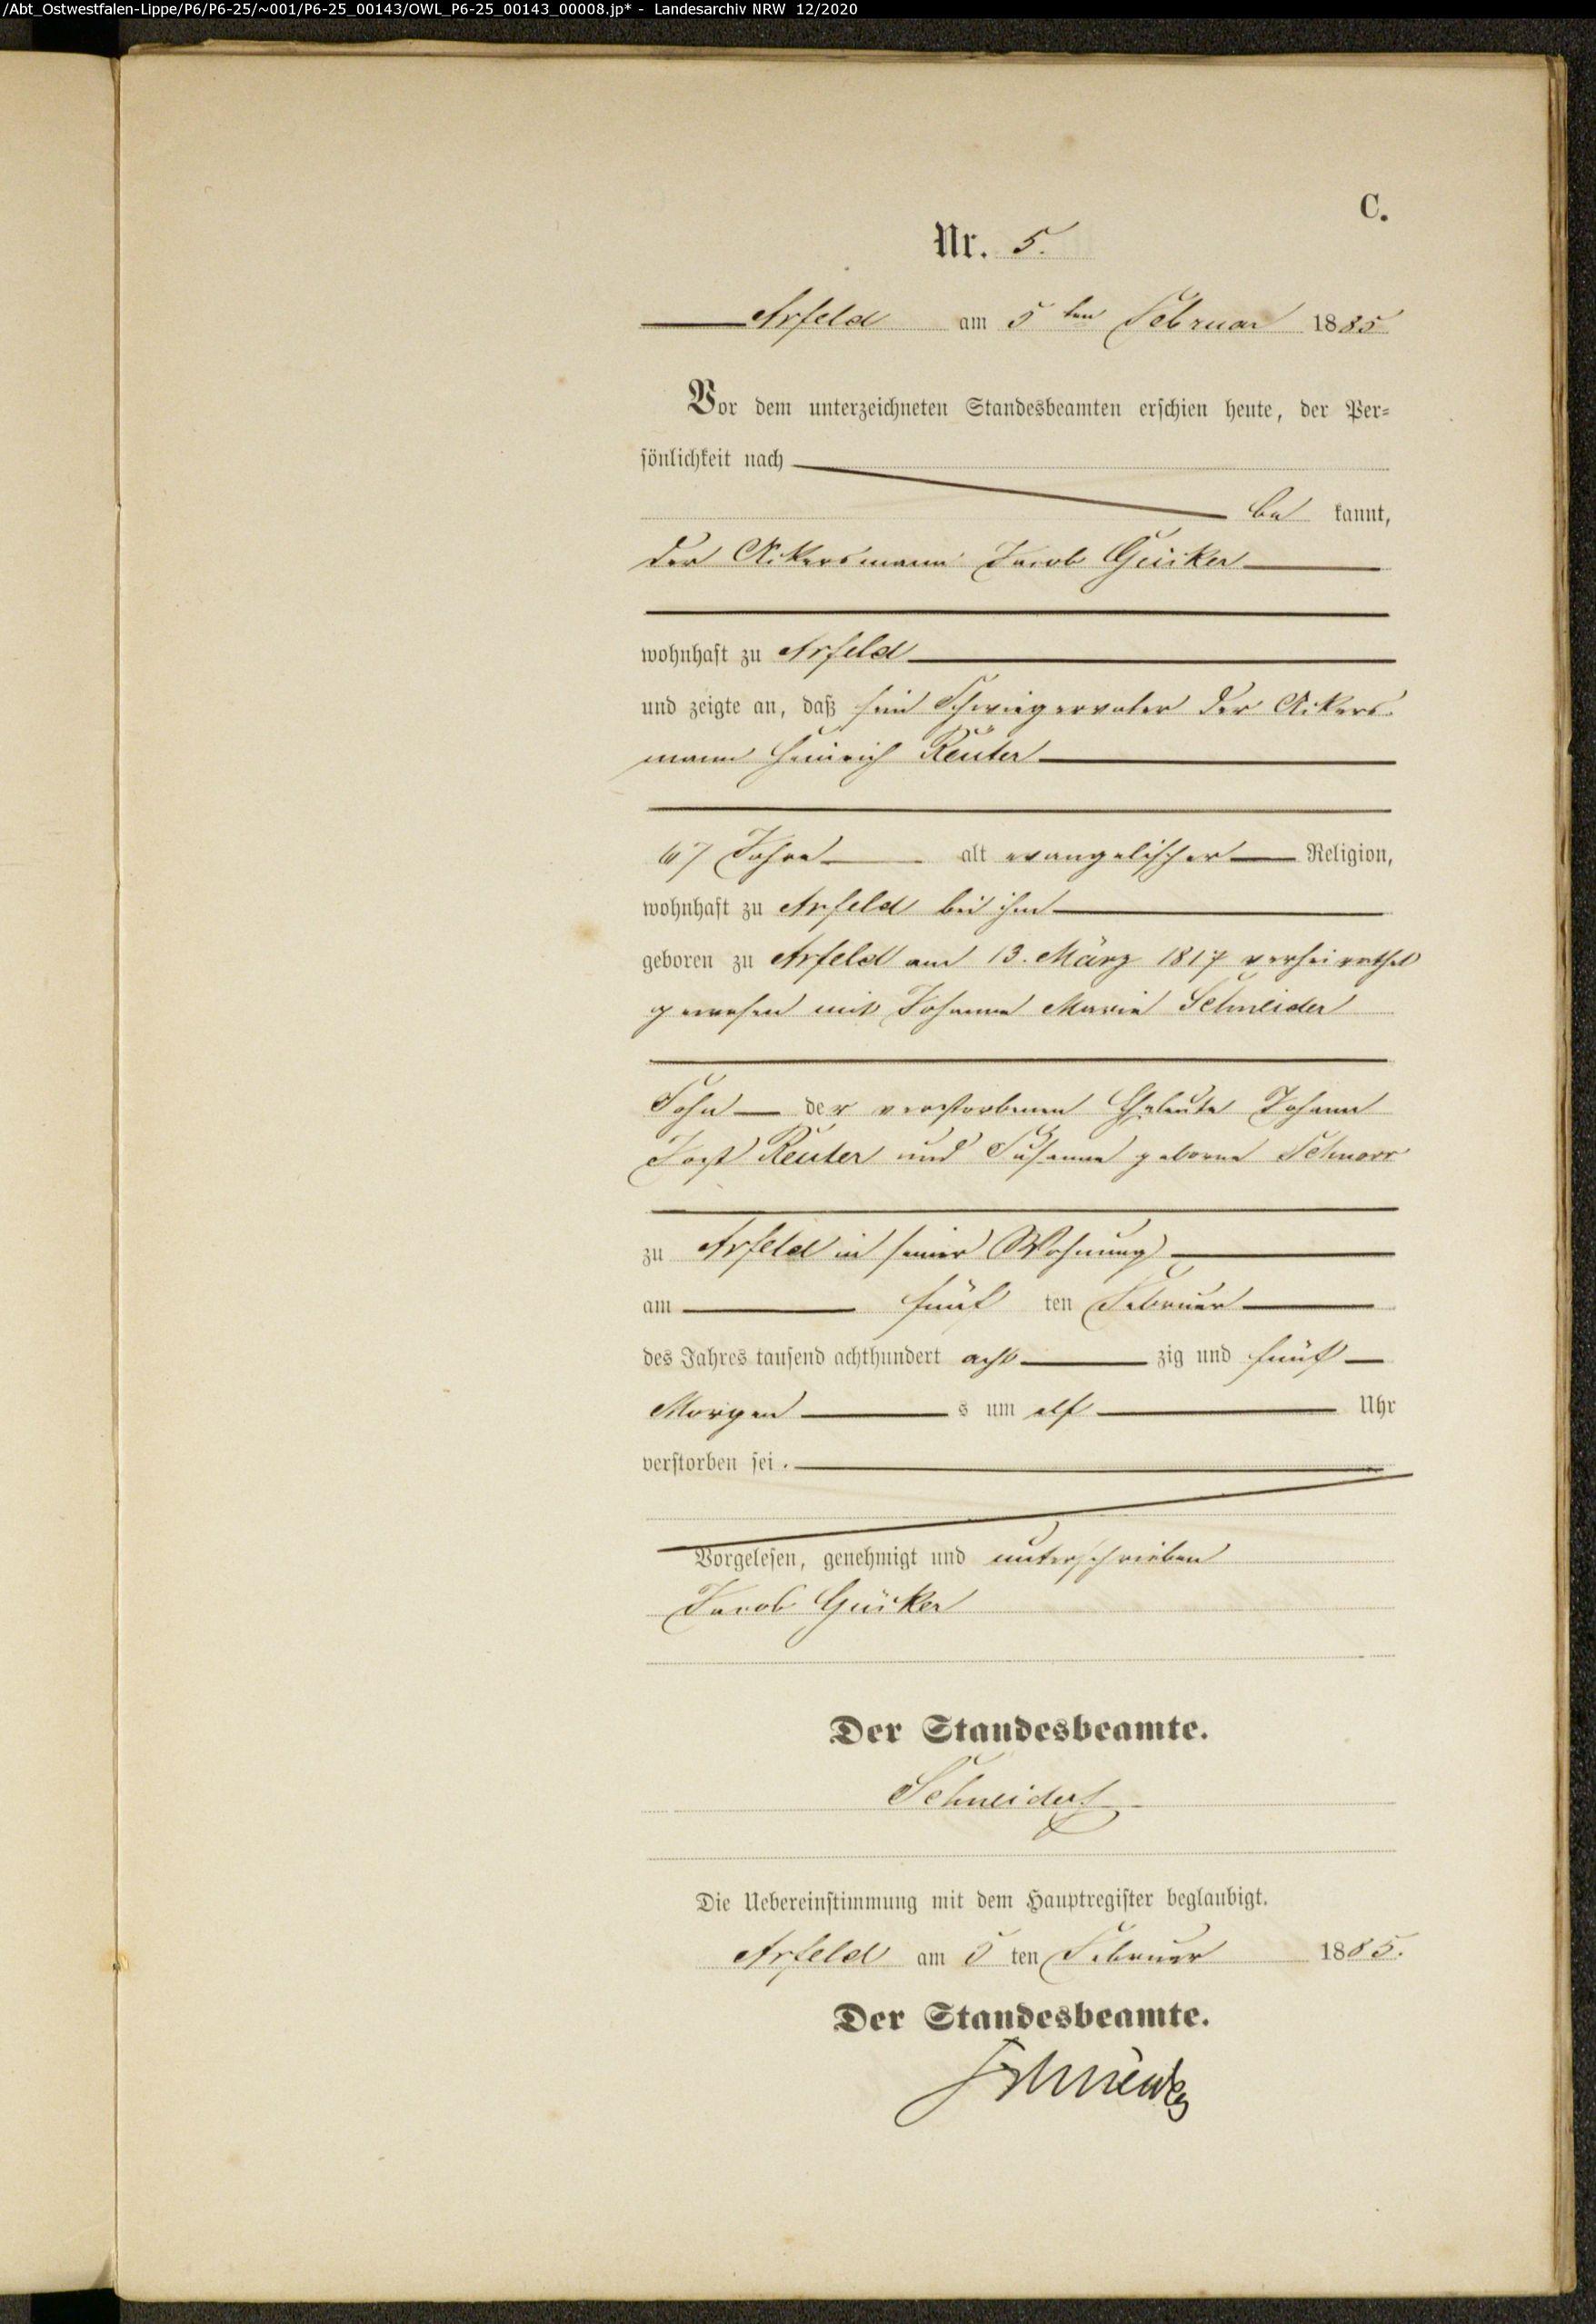 /Abt_Ostwestfalen-Lippe/P6/P6-25/~001/P6-25_00143/OWL_P6-25_00143_00008.jp* - Landesarchiv NRW 12/2020
C.
Nr. 5.
Arfeld am 5ten Februar 1885
Vor dem unterzeichneten Standesbeamten erschien heute, der Per-
sönlichkeit nach
be kannt,
der Ackersmann Jacob Gücker
wohnhaft zu Arfeld
und zeigte an, daß sein Schwiegervater der Ackers-
mann Heinrich Reuter
67 Jahre alt evangelischer Religion,
wohnhaft zu Arfeld bei ihm
geboren zu Arfeld am 13. März 1817 verheirathet
gewesen mit Johanna Maria Schneider
Sohn der verstorbenen Eheleute Johann
Jost Reuter und Susanna geborne Schnorr
zu Arfeld in seiner Wohnung
am fünf ten Februar
des Jahres tausend achthundert acht zig und fünf
Morgen s um elf Uhr
verstorben sei.
Vorgelesen, genehmigt und unterschrieben
Jacob Gücker
Der Standesbeamte.
Schneider
Die Uebereinstimmung mit dem Hauptregister beglaubigt.
Arfeld am 5 ten Februar 1885.
Der Standesbeamte.
Schneider